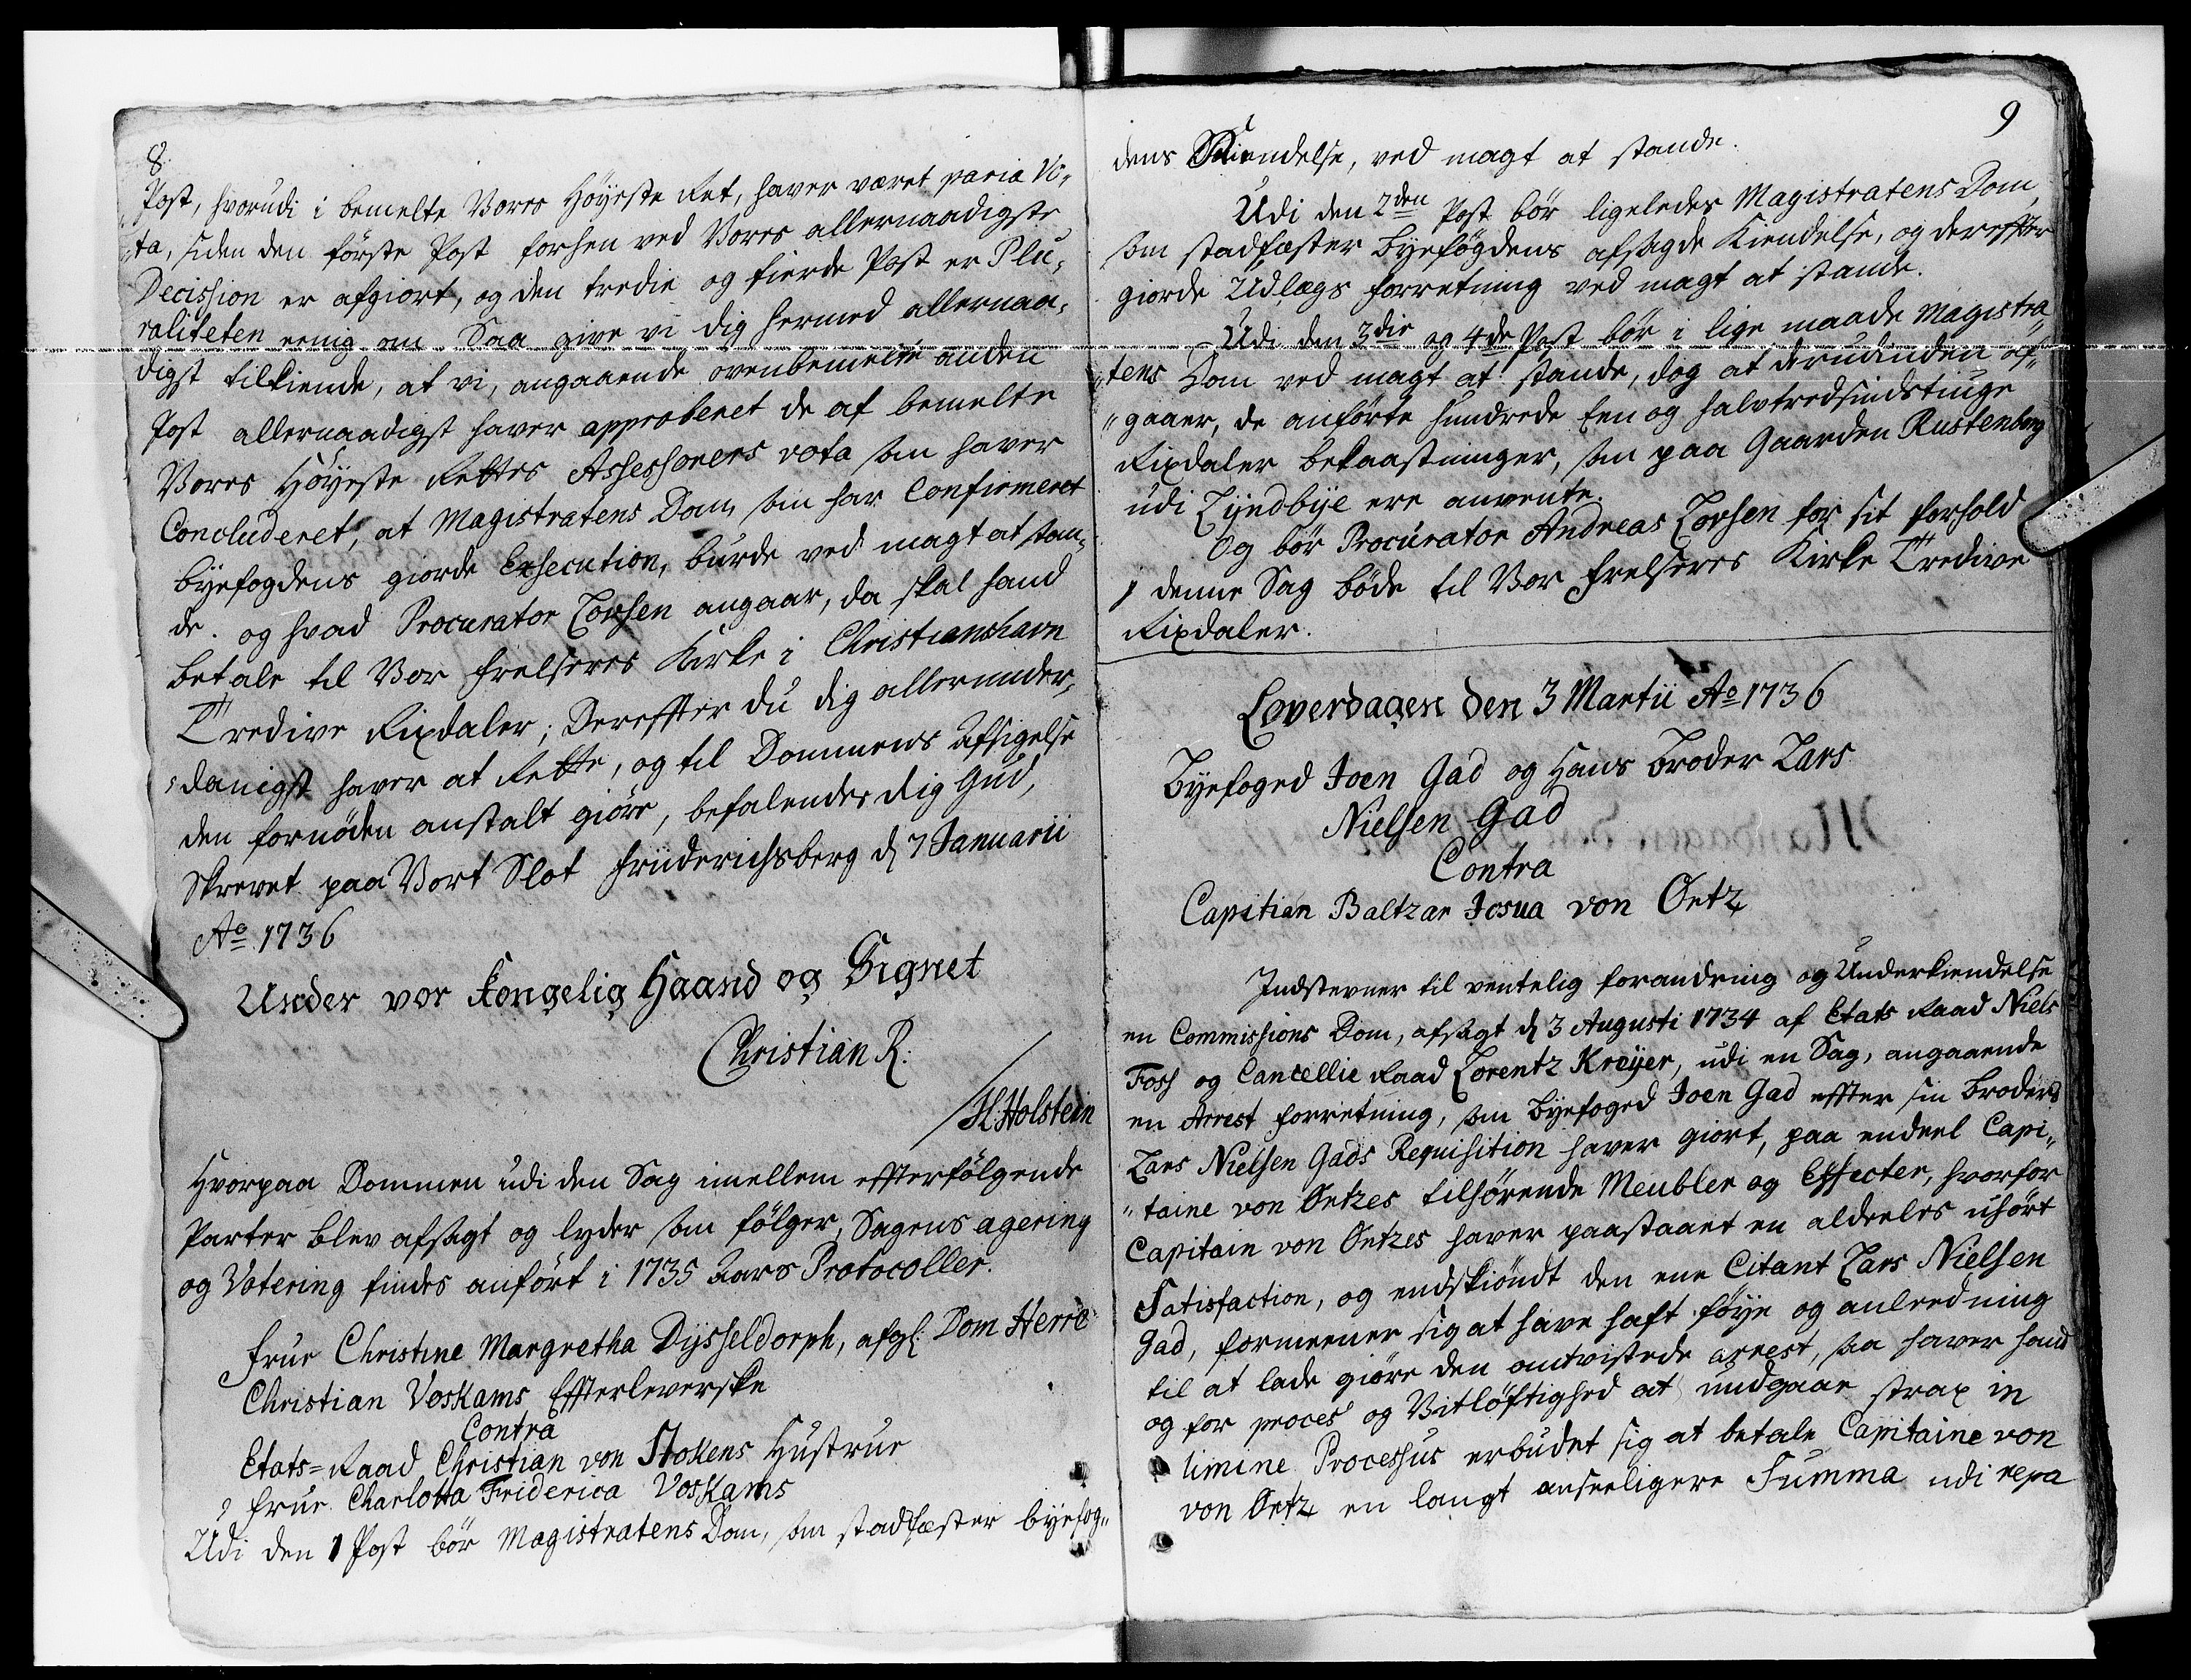 8.
Post, hvorudi i bemelte Vores Höyeste Ret, haver været paria Vo„
„ta, siden den förste Post forhen ved Vores allernaadigste
Decission er afgiort, og den tredie og fierde Post er Plu„
raliteten eenig om Saa give vi dig hermed allernaa„
digst tilkiende, at vi, angaaende ovenbemelte anden
Post allernaadigst haver approberet de af bemelte
Vores Höyeste Rettes Assessorers vota som haver
Concluderet, at Magistratens Dom, som har Confirmeret
byefogdens giorde Exsecution, burde ved magt at stan„
de. og hvad Procurator Lovsen angaar, da skal hand
betale til Vor Frelseres Kirke i Christianshavn
Tredive Rixdaler; Dereffter du dig allerunder„
„danigst haver at Rette, og til Dommens Afsigelse
den fornöden anstalt giöre, befalendes dig Gud,
Skrevet paa Vort Slot Friderichsberg d 7 Januarii
Ao 1736
Under vor Kongelig Haand og Signet
Christian R.
/H: Holstein
Hvorpaa Dommen udi den Sag imellem effterfölgende
Parter blev afsagt og lyder som fölger, Sagens agering
og Votering findes anfört i 1735 Aars Protocoller.
Frue Christine Margretha Dysseldorph, afgl: Dom Herre
Christian Voskams Effterleverske
Contra
Etats=Raad Christian von Stokens Hustrue
Frue Charlotta Friderica Voskams
Udi den 1 Post bör Magistratens Dom, som stadfæster byefog„
9
dens Kiendelse, ved magt at stande.
Udi den 2den Post bör ligeledes Magistratens Dom,
som stadfæster byefögdens afsagde Kiendelse, og dereffter
giorde Udlægs forretning ved magt at stande.
Udi den 3die og 4de Post bör i lige maade Magistra
„tens Dom ved magt at stande, dog at derudinden af„
„gaaer, de anförte hundrede Een og halvtredsindstiuge
Rixdaler bekaastninger, som paa Gaarden Rustenberg
udi Lyndbye ere anvente.
Og bör Procurator Andreas Lovsen for sit forhold
i denne Sag böde til Vor Frelseres Kirke Tredive
Rixdaler.
Löverdagen den 3 Martii Ao 1736
Byefoged Joen Gad og Hans Broder Lars
Nielsen Gad
Contra
Capitian Baltzar Josua von Oetz
Indstevner til ventelig forandring og Underkiendelse
en Commissions Dom, afsagt d 3 Augusti 1734 af Etats Raad Niels
Foss og Cancellie Raad Lorentz Kreyer, udi en Sag, angaaende
en Arrest forretning, som byefoged Joen Gad effter sin broders
Lars Nielsen Gads Requisition haver giort, paa endeel Capi„
„taine von Oetzes tilhörende Meubler og Effecter, hvorfor
Capitain von Oetzes haver paastaaet en aldeeles uhört
Satisfaction, og endskiöndt den ene Citant Lars Nielsen
Gad, formeener sig at have haft föye og anleedning
til at lade giöre den omtvistede arrest, saa haver hand
og for proces og Vitlöftighed at undgaae strax in
limine Processus erbudet sig at betale Capitaine von
von Oetz en langt anseeligere Summa udi repa